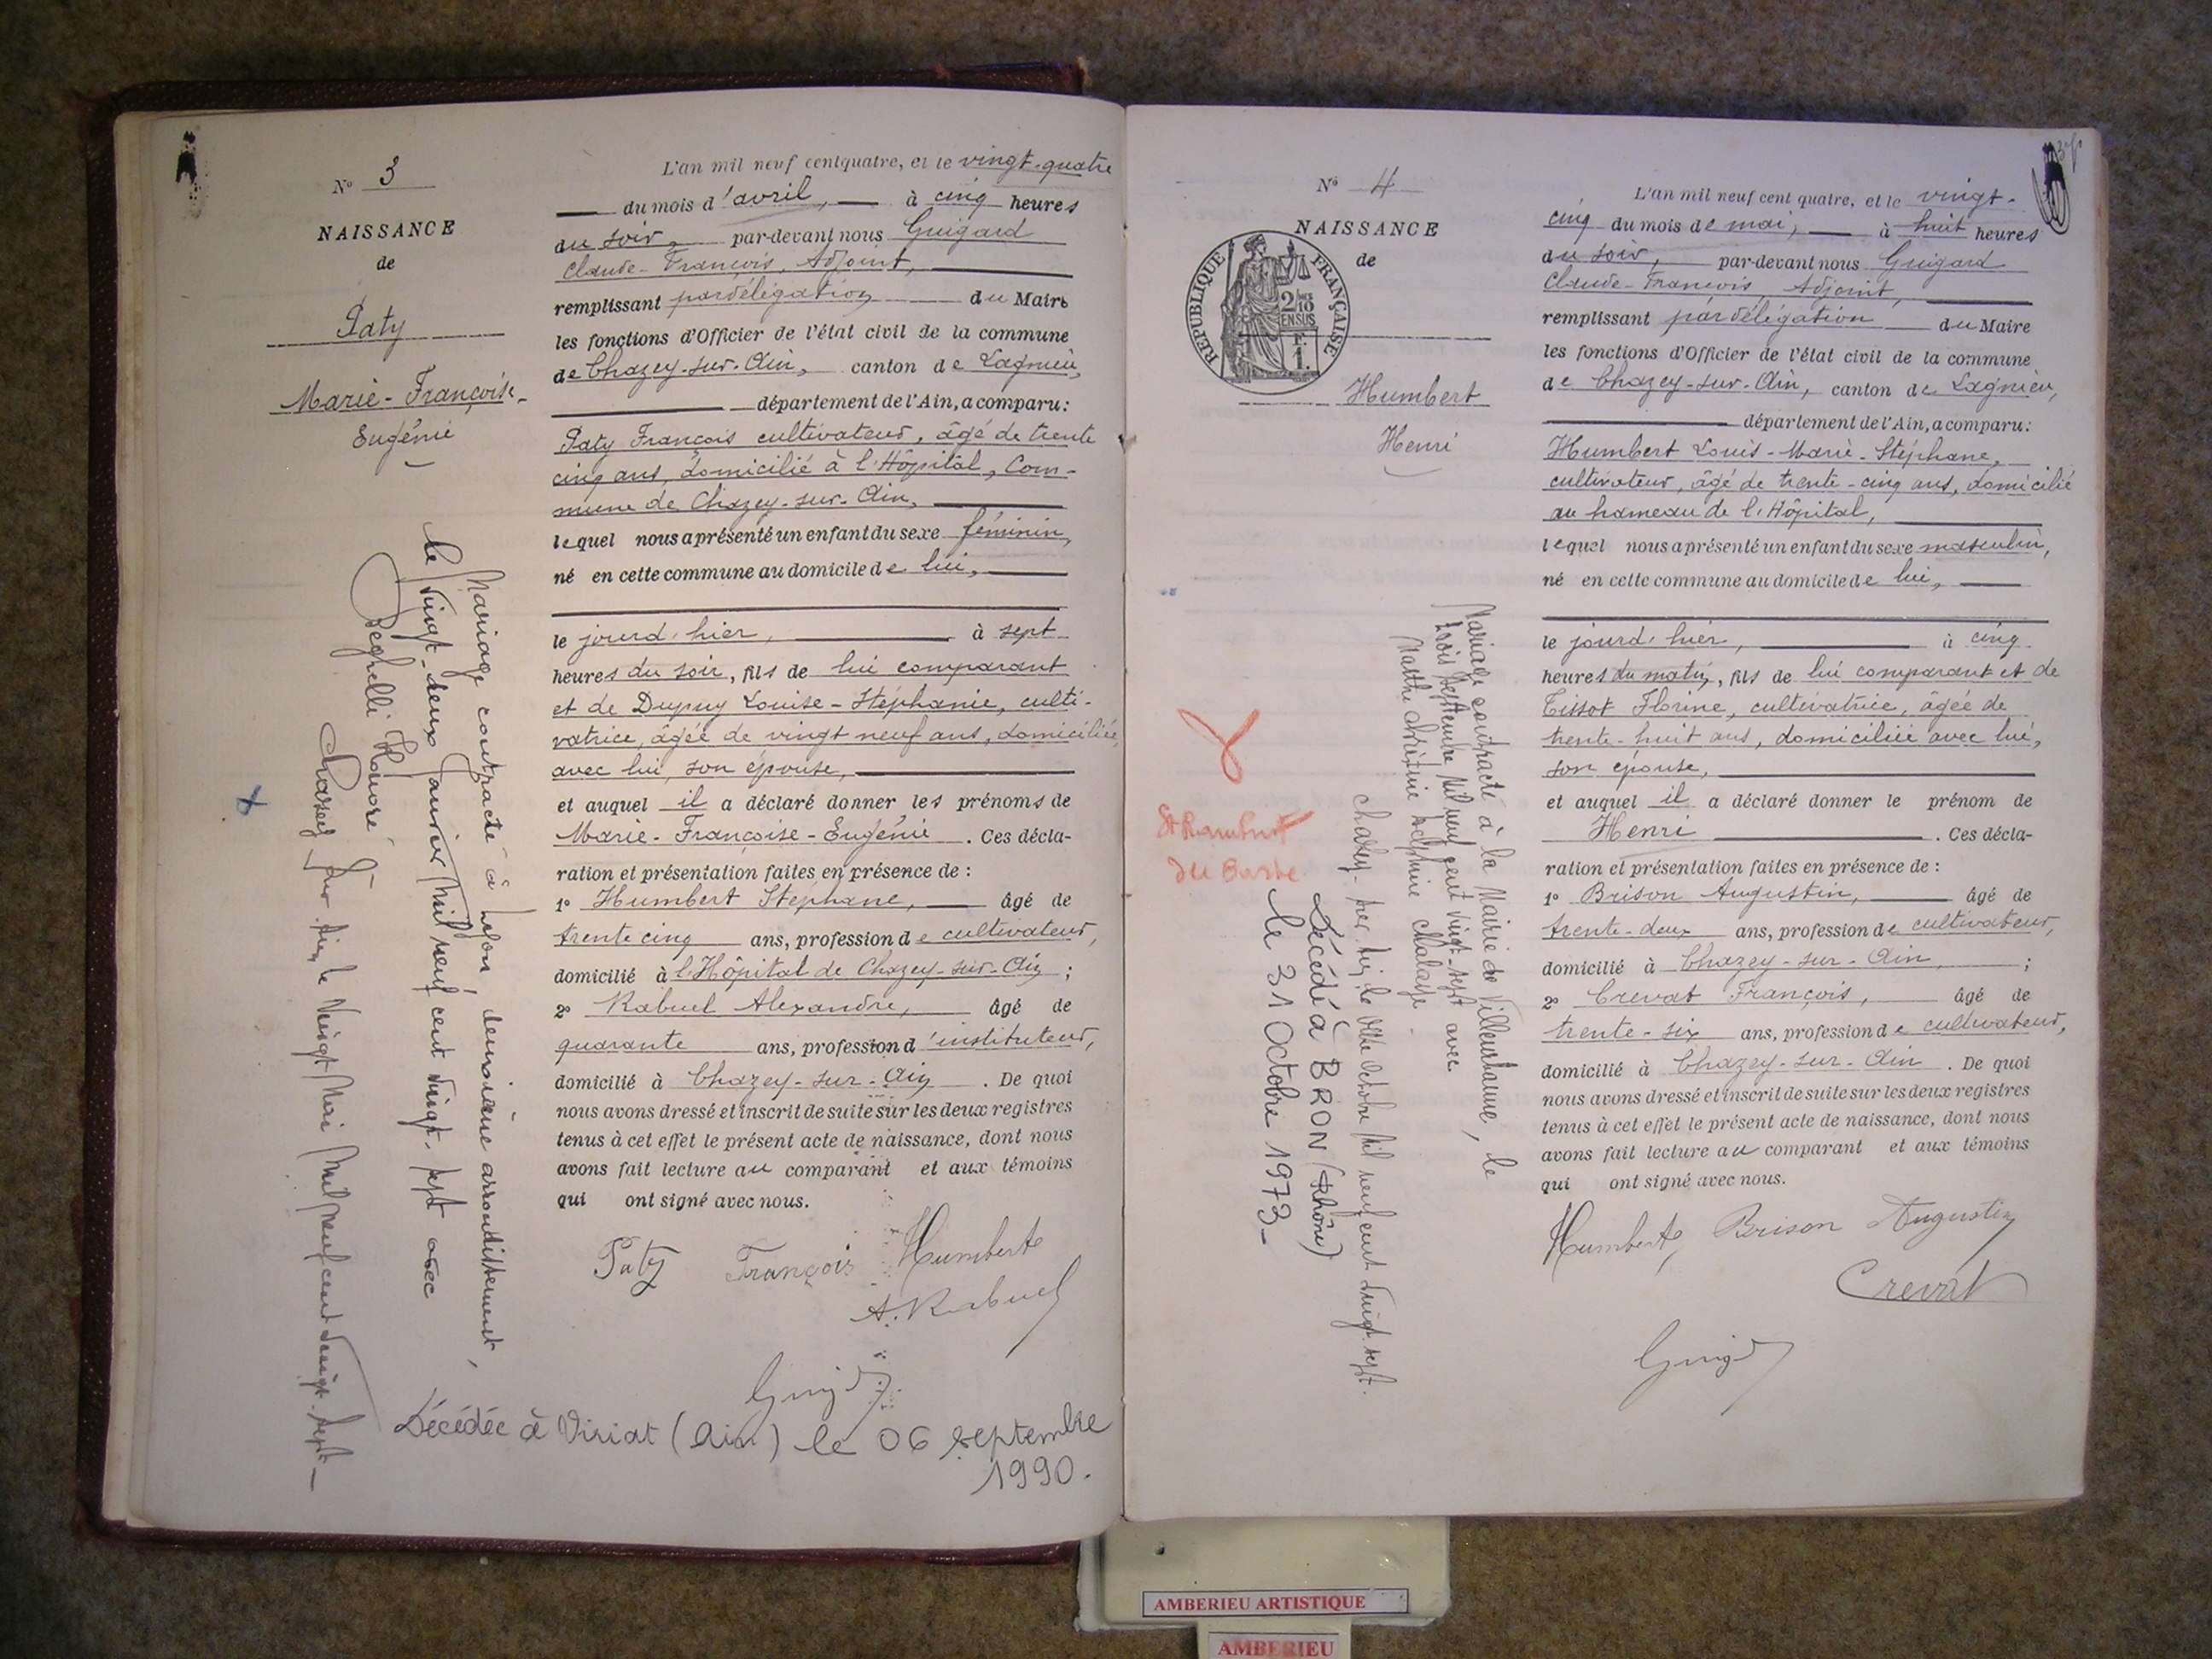 N° 3
NAISSANCE
de
Paty
Marie-Françoise-
Eugénie
L'an mil neuf cent quatre, et le vingt-quatre
du mois d'avril, à cinq heures
du soir, par-devant nous Guigard
Claude-François, Adjoint,
remplissant par délégation du Maire
les fonctions d'Officier de l'état civil de la commune
de Chazey-sur-Ain, canton de Lagnieu,
département de l'Ain, a comparu:
Paty François cultivateur, âgé de trente
cinq ans, domicilié à l'Hôpital, Com-
mune de Chazey-sur-Ain,
lequel nous a présenté un enfant du sexe féminin,
né en cette commune au domicile de lui,
le jourd'hier, à sept
heures du soir, fils de lui comparant
et de Dupuy Louise-Stéphanie, culti-
vatrice, âgée de vingt neuf ans, domiciliée
avec lui, son épouse,
et auquel il a déclaré donner les prénoms de
Marie-Françoise-Eugénie. Ces décla-
ration et présentation faites en présence de :
1° Humbert Stéphane, âgé de
trente cinq ans, profession de cultivateur,
domicilié à l'Hôpital de Chazey-sur-Ain ;
2° Rabuel Alexandre, âgé de
quarante ans, profession d'instituteur,
domicilié à Chazey-sur-Ain. De quoi
nous avons dressé et inscrit de suite sur les deux registres
tenus à cet effet le présent acte de naissance, dont nous
avons fait lecture au comparant et aux témoins
qui ont signé avec nous.
Paty François Humbert
A. Rabuel
Guigard
Mariage contracté à Lyon, deuxième arrondissement,
le vingt-deux janvier mil neuf cent vingt-sept avec
Honoré
Chazey sur Ain le vingt mai mil neuf cent vingt-sept
Décédée à Viriat (Ain) le 06 septembre
1990.
N° 4
NAISSANCE
de
RÉPUBLIQUE FRANÇAISE
2/10
EN SUS
1.
Humbert
Henri
L'an mil neuf cent quatre, et le vingt-
cinq du mois de mai, à huit heures
du soir, par-devant nous Guigard
Claude-François Adjoint,
remplissant par délégation du Maire
les fonctions d'Officier de l'état civil de la commune
de Chazey-sur-Ain, canton de Lagnieu,
département de l'Ain, a comparu:
Humbert Louis-Marie-Stéphane,
cultivateur, âgé de trente-cinq ans, domicilié
au hameau de l'Hôpital,
lequel nous a présenté un enfant du sexe masculin,
né en cette commune au domicile de lui,
le jourd'hier, à cinq
heures du matin, fils de lui comparant et de
Tissot Florine, cultivatrice, âgée de
trente-huit ans, domiciliée avec lui,
son épouse,
et auquel il a déclaré donner le prénom de
Henri. Ces décla-
ration et présentation faites en présence de :
1° Brison Augustin, âgé de
trente-deux ans, profession de cultivateur,
domicilié à Chazey-sur-Ain ;
2° Crevat François, âgé de
trente-six ans, profession de cultivateur,
domicilié à Chazey-sur-Ain. De quoi
nous avons dressé et inscrit de suite sur les deux registres
tenus à cet effet le présent acte de naissance, dont nous
avons fait lecture au comparant et aux témoins
qui ont signé avec nous.
Humbert Brison Augustin
Crevat
Guigard
Mariage contracté à la Mairie de Villeurbanne, le
trois septembre mil neuf cent vingt-sept avec
Marthe Delphine Chalaye.
Chazey-sur-Ain le octobre mil neuf cent vingt sept.
Décédé à BRON (Rhône)
le 31 Octobre 1973-
St Rambert
AMBERIEU ARTISTIQUE
AMBERIEU